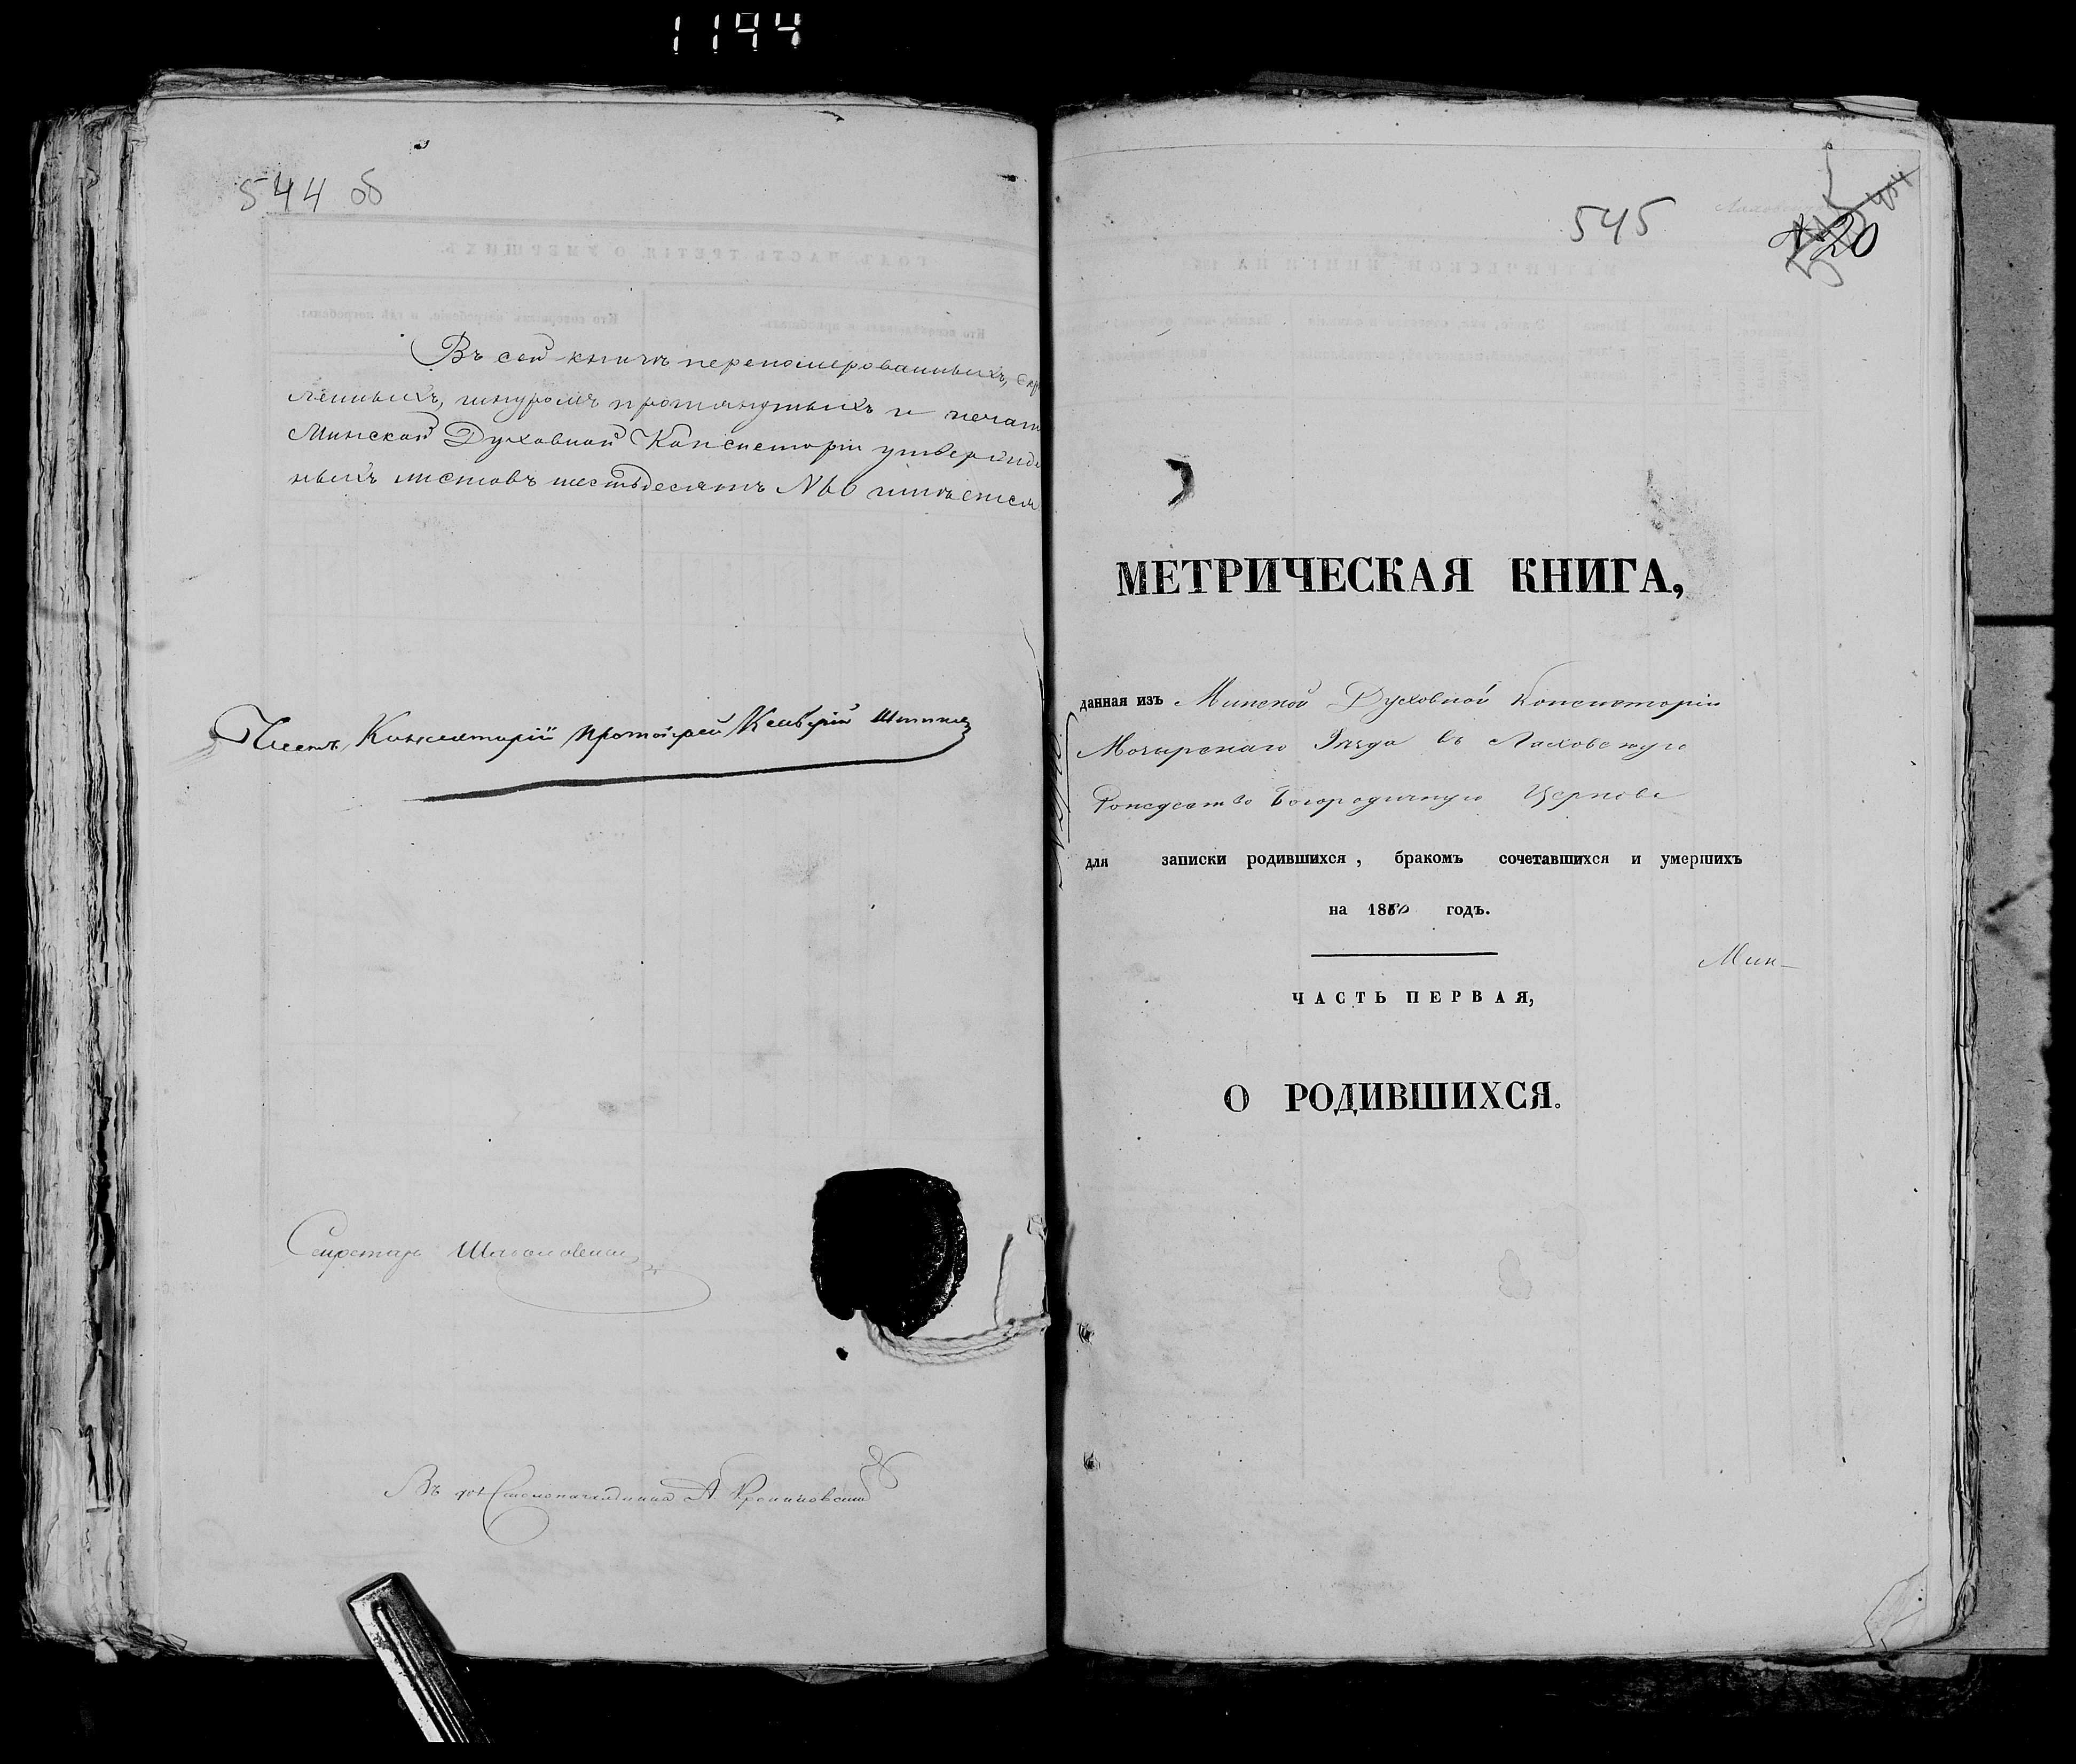 1144
544 об
Въ сей книгѣ перепомерованныхъ, скрѣ
пленныхъ, шнуромъ протянутыхъ и печатью
Минской Духовной Консисторіи утвержден
ныхъ листовъ шестьдесятъ №60 числится
Членъ Консисторіи Протоіерей
Секретарь
Въ д. Столоначальника А.
545
20
МЕТРИЧЕСКАЯ КНИГА,
данная изъ Минской Духовной Консисторіи
Мозырскаго Уѣзда въ Лаховскую
Рождество Богородичную Церковь
для записки родившихся, бракомъ сочетавшихся и умершихъ
на 18 годъ.
Мин-
ЧАСТЬ ПЕРВАЯ,
О РОДИВШИХСЯ.